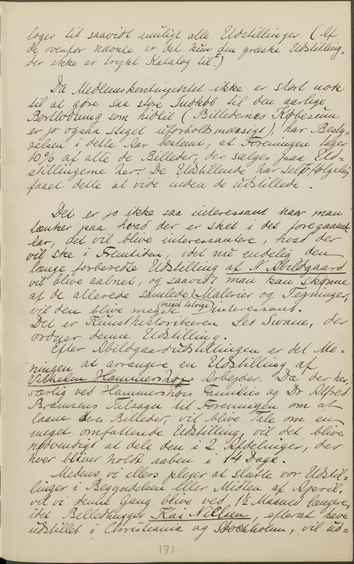 loger til saavidt muligt alle Udstillinger (Af
de ovenfor nævnte er det kun den græske Udstilling,
der ikke er trykt Katalog til.)
Da Medlemskontingentet ikke er stort nok
til at gøre saa store Indkøb til den aarlige
Bortlodning som hidtil (Billedernes Købesum
er jo ogsaa steget uforholdsmæssigt), har Besty-
relsen i dette Aar bestemt, at Foreningen tager
10% af alle de Billeder, der sælges paa Ud-
stillingerne her. De Udstillende har selvfølgelig
faaet dette at vide inden de udstillede.
Det er jo ikke saa interessant naar man
tænker paa hvad der er sket i det foregaaende
Aar, det vil blive interessantere, hvad der
vil ske i Fremtiden, idet nu endelig den
længe forberedte Udstilling af N. Abildgaard
vil blive aabnet, og saavidt man kan skønne
af de allerede samlede Malerier og Tegninger,
vil den blive meget interessant.
Det er Kunsthistorikeren Leo Swane, der
ordner denne Udstilling.
Efter Abildgaardudstillingen er det Me-
ningen at arrangere en Udstilling af
Vilhelm Hammershøis Arbejder. Da der her,
ved Hammershøis Familie og Dr Alfred
Bramsens Tilsagn til Foreningen om at
laane Billeder, vil blive Tale om en
meget omfattende Udstilling, vil det blive
nødvendigt at dele den i 2 Afdelinger, der
hver bliver holdt aaben i 14 Dage.
Medens vi ellers plejer at slutte vor Udstil-
linger i Begyndelsen eller Midten af April,
vil vi denne Gang blive ved 1½ Maaned længere,
idet Billedhugger Kai Nielsen, efterat have
udstillet i Christiania og Stockholm, vil ud-
171